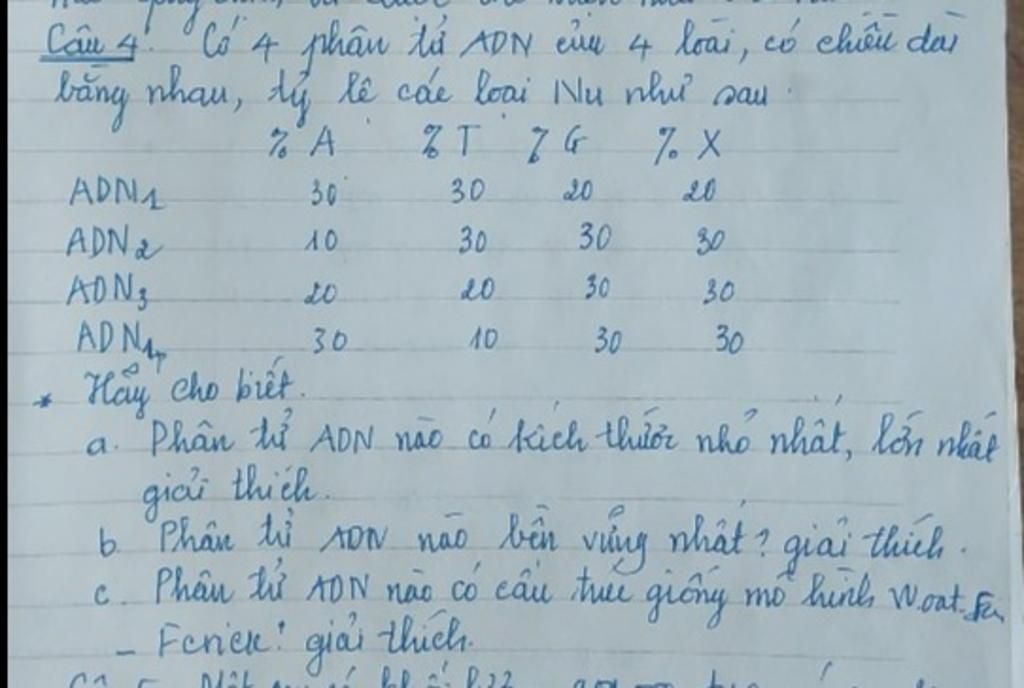 Câu 4: Có 4 phân tử ADN của 4 loài, có chiều dài
bằng nhau, tỷ lệ các loại Nu như sau:
% A % T % G % X
ADN1 30 30 20 20
ADN2 10 30 30 30
ADN3 20 20 30 30
ADN4 30 10 30 30
* Hãy cho biết.
a. Phân tử ADN nào có kích thước nhỏ nhất, lớn nhất
giải thích.
b. Phân tử ADN nào bền vững nhất? giải thích.
c. Phân tử ADN nào có cấu trúc giống mô hình Woat
- Fcrick! giải thích.